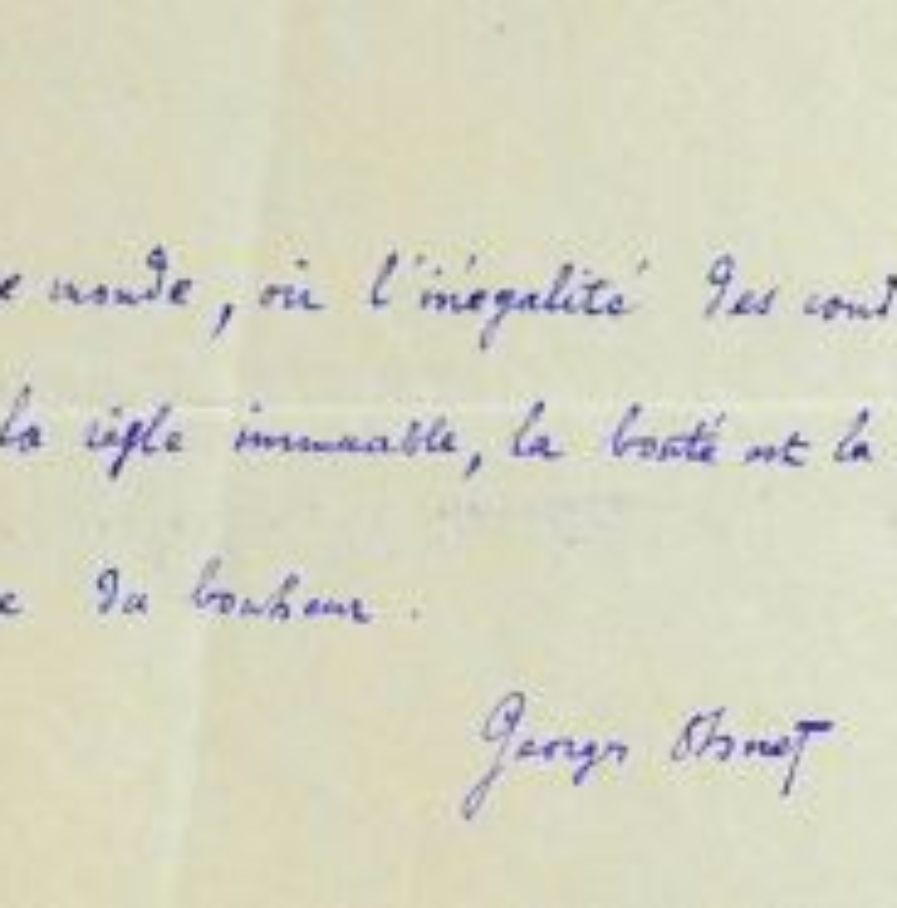 e monde, où l'inégalité des cond
la règle immuable, la bonté est la
e du bonheur.
Georges Ohnet